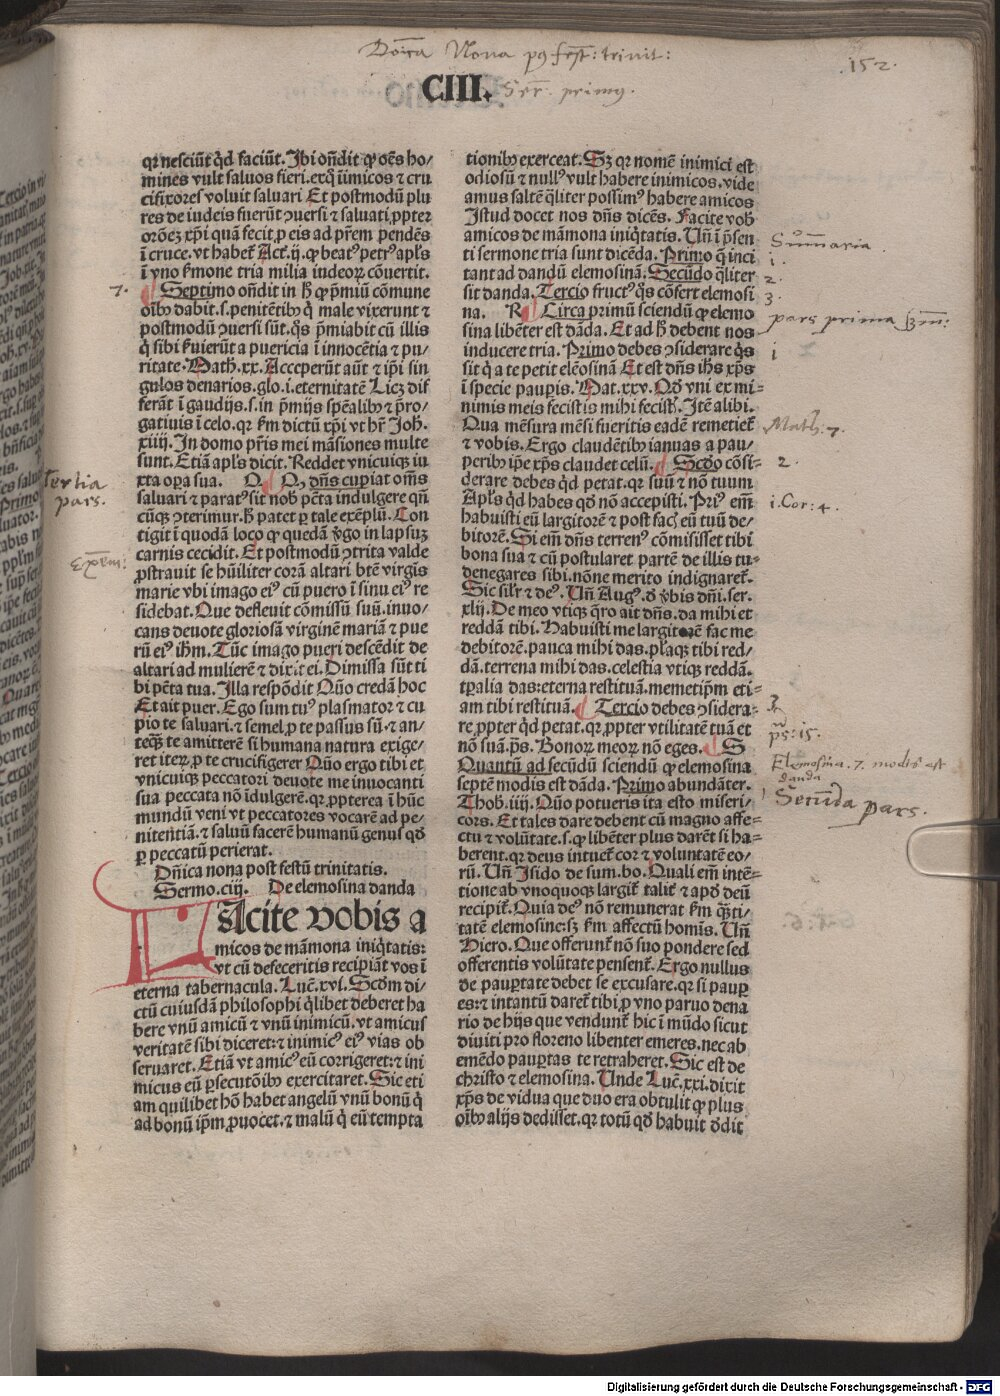 Dõica Nona pꝯ fest: trinit:
152.
CIII.
Ser. primꝯ.
qꝛ nesciũt qͥd faciũt. Ibi oñdit ꝙ oẽs ho/
mines vult saluos fieri. exqͦ inimicos ⁊ cru
cifixores voluit saluari Et postmodũ plu
res de iudeis fuerũt ↄuersi ⁊ saluati, ꝓpter
orõez xp̃i quã fecit ꝓ eis ad pr̃em pendẽs
ĩ cruce. vt habet̃ Act. ij. ꝙ beatꝰ petrꝰ apl̃s
ĩ vno ẜmone tria milia indeoꝝ cõuertit.
Septimo oñdit in ħ ꝙ p̃miũ cõmune
oĩbꝰ dabit. s. penitẽtibꝰ qͥ male vixerunt ⁊
postmodũ ↄuersi sũt. qͦs p̃miabit cũ illis
qͥ sibi ẜuierũt a puericia ĩ innocẽtia ⁊ pu/
ritate. Math. xx. Acceperũt aũt ⁊ ip̃i sin
gulos denarios. glo. i. eternitatẽ Licz dif
ferãt ĩ gaudijs. s. in p̃mijs sp̃ealibꝰ ⁊ p̃ro/
gatiuis ĩ celo. qꝛ ẜm dictũ xp̃i vt hr̃ Joh.
xiiij. In domo pr̃is mei mãsiones multe
sunt. Etiã apl̃s dicit. Reddet vnicuiqꝫ iu/
xta oꝑa sua. Q. Qꝫ dñs cupiat oẽs
saluari ⁊ paratꝰ sit nob̃ pctã indulgere qñ
cũqꝫ ↄterimur. ħ patet ꝑ tale exẽplũ. Con
tigit ĩ quodã loco ꝙ quedã v̾go in lapsuz
carnis cecidit. Et postmodũ ↄtrita valde
ꝓstrauit se hũiliter corã altari btẽ virgĩs
marie vbi imago eiꝰ cũ puero ĩ sinu eiꝰ re
sidebat. Que defleuit cõmissũ suũ. inuo/
cans deuote gloriosã virginẽ mariã ⁊ pue
rũ eiꝰ ih̃m. Tũc imago pueri descẽdit de
altari ad mulierẽ ⁊ dixit ei. Dimissa sũt ti
bi pctã tua. Illa respõdit Quõ credã hoc
Et ait puer. Ego sum tuꝰ plasmator ⁊ cu
pio te saluari. ⁊ semel ꝓ te passus sũ. ⁊ an/
teqꝫ̃ te amitterẽ si humana natura exige/
ret iteꝝ ꝓ te crucifigerer Quõ ergo tibi et
vnicuiqꝫ peccatori deuote me inuocanti
sua peccata nõ ĩdulgerẽ. qꝛ ꝓpterea ĩ hũc
mundũ veni vt peccatores vocarẽ ad pe/
nitentiã. ⁊ saluũ facerẽ humanũ genus qd̾
ꝑ peccatũ perierat.
Dñica nona post festũ trinitatis.
Sermo. ciij. De elemosina danda
Acite vobis a
micos de mãmona iniqͥtatis:
vt cũ defeceritis recipiãt vos ĩ
eterna tabernacula. Luc̃. xvi. Scdm di/
ctũ cuiusdã philosophi qͥlibet deberet ha
bere vnũ amicũ ⁊ vnũ inimicũ. vt amicus
veritatẽ sibi diceret: ⁊ inimicꝰ eiꝰ vias ob
seruaret. Etiã vt amicꝰ eũ corrigeret: ⁊ ini
micus eũ ꝑsecutõibꝰ exercitaret. Sic eti
am quilibet hõ habet angelũ vnũ bonũ qͥ
ad bonũ ip̃m ꝓuocet. ⁊ malũ qͥ eũ tempta
7.
Tertia
pars.
tionibꝰ exerceat. Sꝫ qꝛ nomẽ inimici est
odiosũ ⁊ nullꝰ vult habere inimicos. vide
amus saltẽ qͣliter possimꝰ habere amicos
Istud docet nos dñs dicẽs. Facite vob̃
amicos de mãmona iniqͥtatis. Uñ ĩ p̃sen
ti sermone tria sunt dicẽda. Primo q̃ inci
tant ad dandũ elemosinã. Secũdo qͣliter
sit danda. Tercio fructꝰ qͦs cõfert elemosi
na. R. Circa primũ sciendũ ꝙ elemo
sina libẽter est dãda. Et ad ħ debent nos
inducere tria. Primo debes ↄsiderare qͦs
sit qͥ a te petit eleõsinã Et est dñs ih̃s xp̃s
ĩ specie pauꝑis. Mat. xxv. Qd̾ vni ex mi=
nimis meis fecistis mihi fecistis. Itẽ alibi.
Qua mẽsura mẽsi fueritis eadẽ remetiet̃
⁊ vobis. Ergo claudẽtibꝰ ianuas a pau/
peribꝰ ip̃e xp̃s claudet celũ. Scd̾o cõsi=
derare debes qd̾ petat. qꝛ suũ ⁊ nõ tuum
Apl̃s qd̾ habes qd̾ nõ accepisti. Priꝰ em̃
habuisti eũ largitorẽ ⁊ post facꝭ eũ tuũ de/
bitorẽ. Si em̃ dñs terrenꝰ cõmisisset tibi
bona sua ⁊ cũ postularet partẽ de illis tu=
denegares sibi. nõne merito indignaret̃.
Sic sil̃r ⁊ deꝰ. Uñ Augꝰ. d̾ v̾bis dñi. ser.
xlij. De meo vtiqꝫ qͣro ait dñs. da mihi et
reddã tibi. Habuisti me largitorẽ fac me
debitorẽ. pauca mihi das. plaqꝫ tibi red/
dã. terrena mihi das. celestia vtiqꝫ reddã.
tꝑalia das: eterna restituã. memetip̃m eti=
am tibi restituã. Tercio debes ↄsidera=
re ꝓpter qd̾ petat. qꝛ ꝓpter vtilitatẽ tuã et
nõ suã. p̃s. Bonoꝝ meoꝝ nõ eges. S
Quantũ ad secũdũ sciendũ ꝙ elemosina
septẽ modis est dãda. Primo abundãter.
Thob. iiij. Quõ potueris ita esto miseri/
cors. Et tales dare debent cũ magno affe=
ctu ⁊ volũtate. s. ꝙ libẽter plus darẽt si ha=
berent. qꝛ deus intuet̃ cor ⁊ voluntatẽ eo/
rũ. Uñ Isido de sum. bo. Quali em̃ intẽ=
tione ab vnoquoqꝫ largit̃ talit̃ ⁊ apd̾ deũ
recipit̃. Quia deꝰ nõ remunerat ẜm qͣꝫti/
tatẽ elemosine: sꝫ ẜm affectũ homĩs. Uñ
Hiero. Que offerunt̃ nõ suo pondere sed
offerentis volũtate pensent̃. Ergo nullus
de pauꝑtate debet se excusare. qꝛ si pauꝑ
es: ⁊ intantũ daret̃ tibi, ꝓ vno paruo dena
rio de hijs que vendunt̃ hic ĩ mũdo sicut
diuiti pro floreno libenter emeres. nec ab
emẽdo pauꝑtas te retraheret. Sic est de
christo ⁊ elemosina. Unde Luc̃. xxi. dixit
xp̃s de vidua que duo era obtulit ꝙ plus
oĩbꝰ alijs dedisset. qꝛ totũ qd̾ habuit d̾dit
Sum̃aria.
1.
2.
3.
pars prima
i
Math: 7.
2.
i. Cor: 4.
3.
ps: 15.
Elemosina. 7. modis est
danda
Secunda pars.
Digitalisierung gefördert durch die Deutsche Forschungsgemeinschaft - DFG